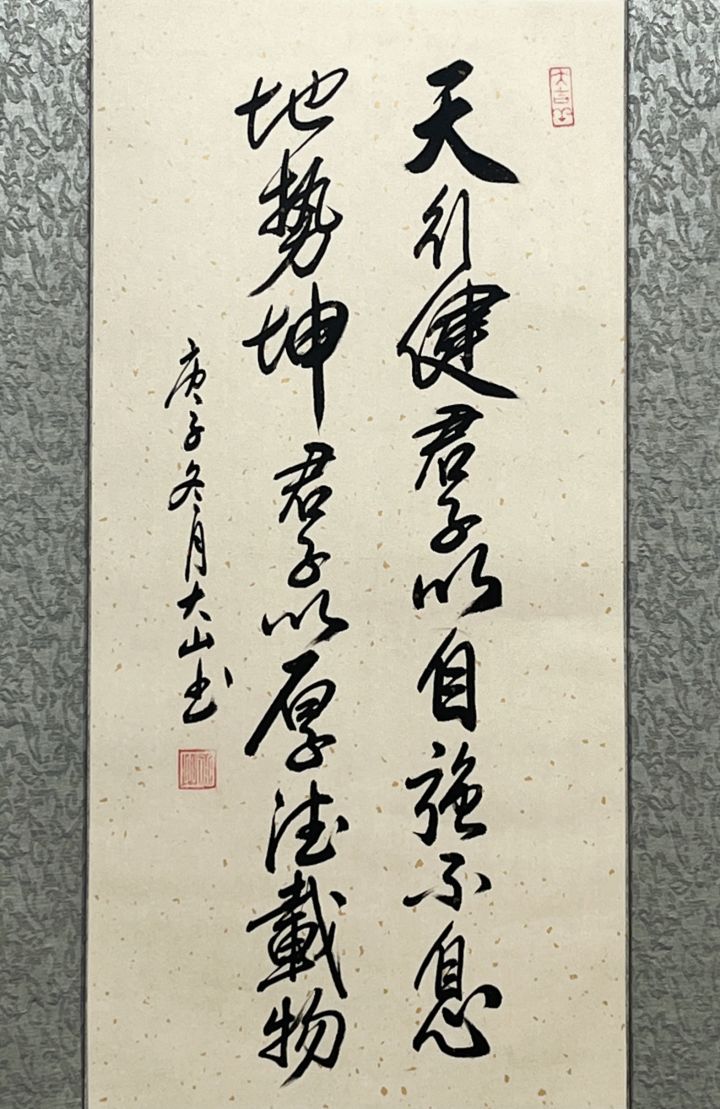 天行健君子以自強不息
地勢坤君子以厚德載物
庚子冬月大山书